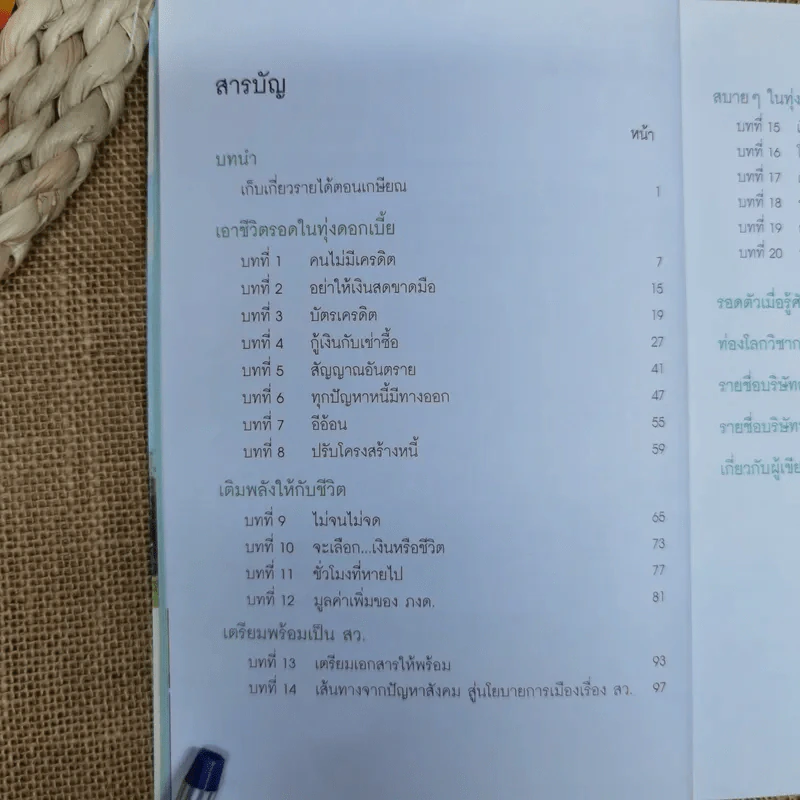 สารบัญ
หน้า
บทนำ
เก็บเกี่ยวรายได้ตอนเกษียณ 1
เอาชีวิตรอดในทุ่งดอกเบี้ย
บทที่ 1 คนไม่มีเครดิต 7
บทที่ 2 อย่าให้เงินสดขาดมือ 15
บทที่ 3 บัตรเครดิต 19
บทที่ 4 กู้เงินกับเช่าซื้อ 27
บทที่ 5 สัญญาณอันตราย 41
บทที่ 6 ทุกปัญหาหนี้มีทางออก 47
บทที่ 7 อีอ้อน 55
บทที่ 8 ปรับโครงสร้างหนี้ 59
เติมพลังให้กับชีวิต
บทที่ 9 ไม่จนไม่จด 65
บทที่ 10 จะเลือก...เงินหรือชีวิต 73
บทที่ 11 ชั่วโมงที่หายไป 77
บทที่ 12 มูลค่าเพิ่มของ ภงด. 81
เตรียมพร้อมเป็น สว.
บทที่ 13 เตรียมเอกสารให้พร้อม 93
บทที่ 14 เส้นทางจากปัญหาสังคม สู่นโยบายการเมืองเรื่อง สว. 97
สบายๆ ในทุ่ง
บทที่ 15
บทที่ 16
บทที่ 17
บทที่ 18
บทที่ 19
บทที่ 20
รอดตัวเมื่อรู้
ท่องโลกวิชา
รายชื่อบริษัท
รายชื่อบริษัท
เกี่ยวกับผู้เขีย